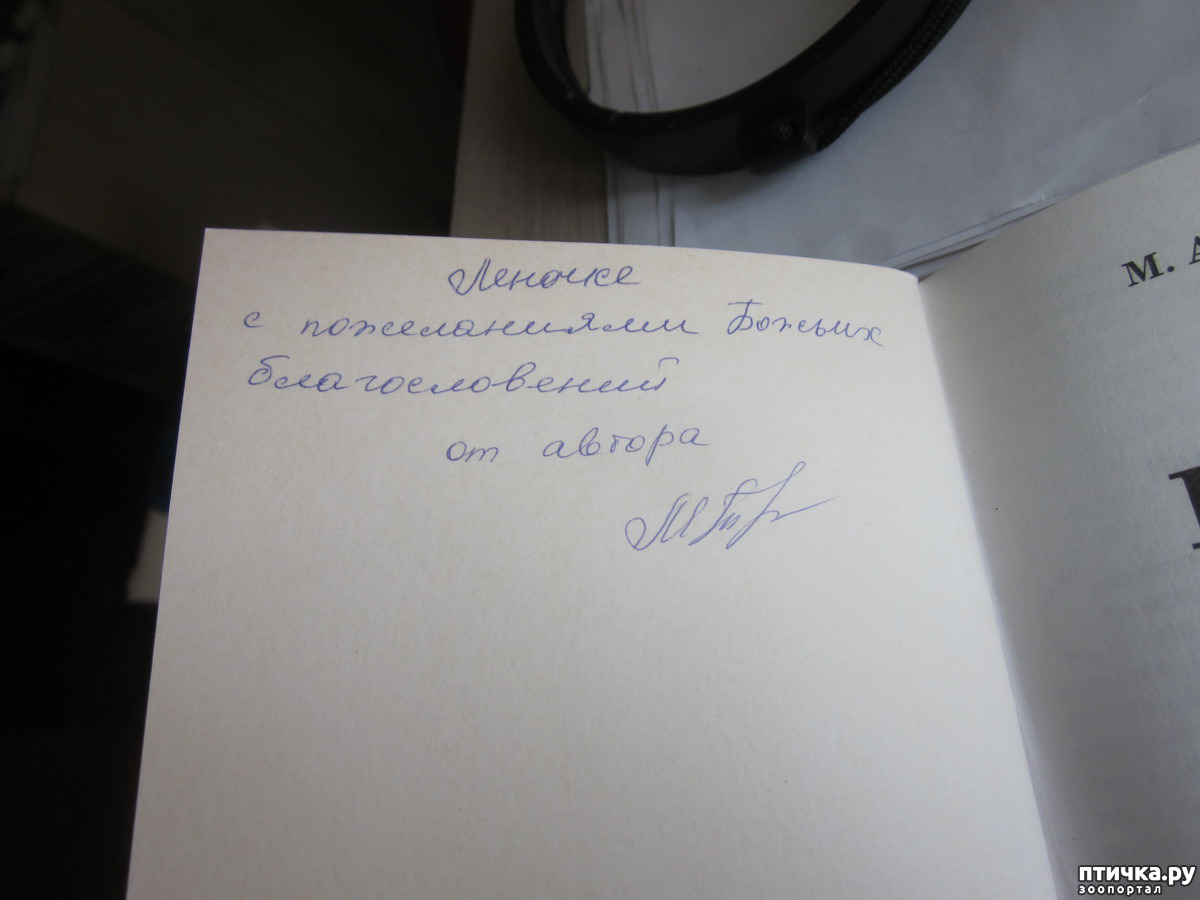 Леночке
с пожеланиями Божьих
благословений
от автора
М. А
птичка.ру
зоопортал